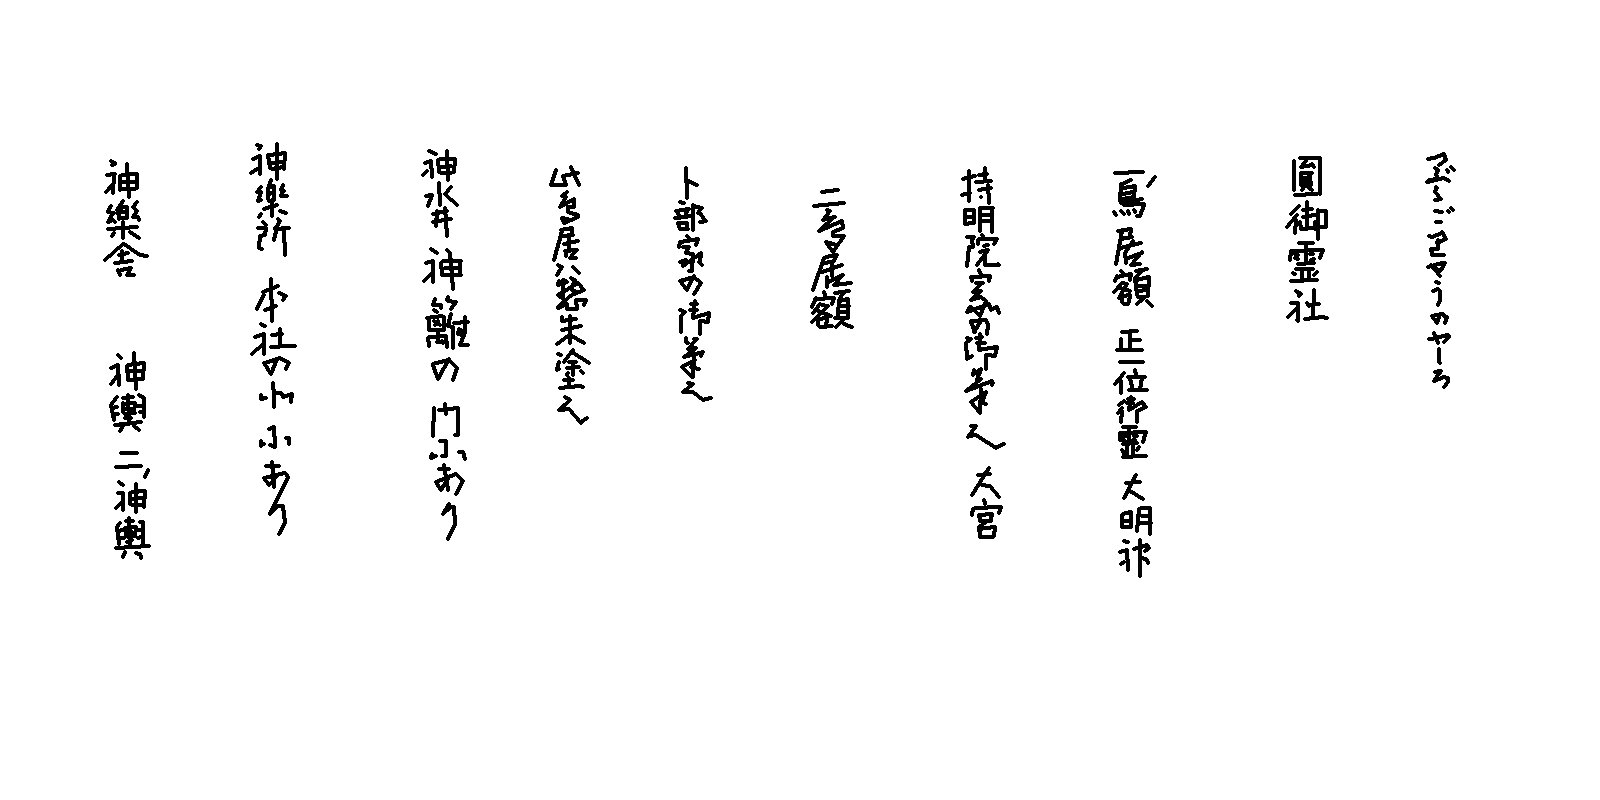 圓御霊社
一ノ鳥居額 正一位御霊大明神
持明院家の御筆也 大宮
二鳥居額
卜部家の御筆也
此鳥居ハ惣朱塗也
神水井 神籬の門ニあり
神樂所 本社の北ニあり
神樂舎 神輿 二ノ神輿